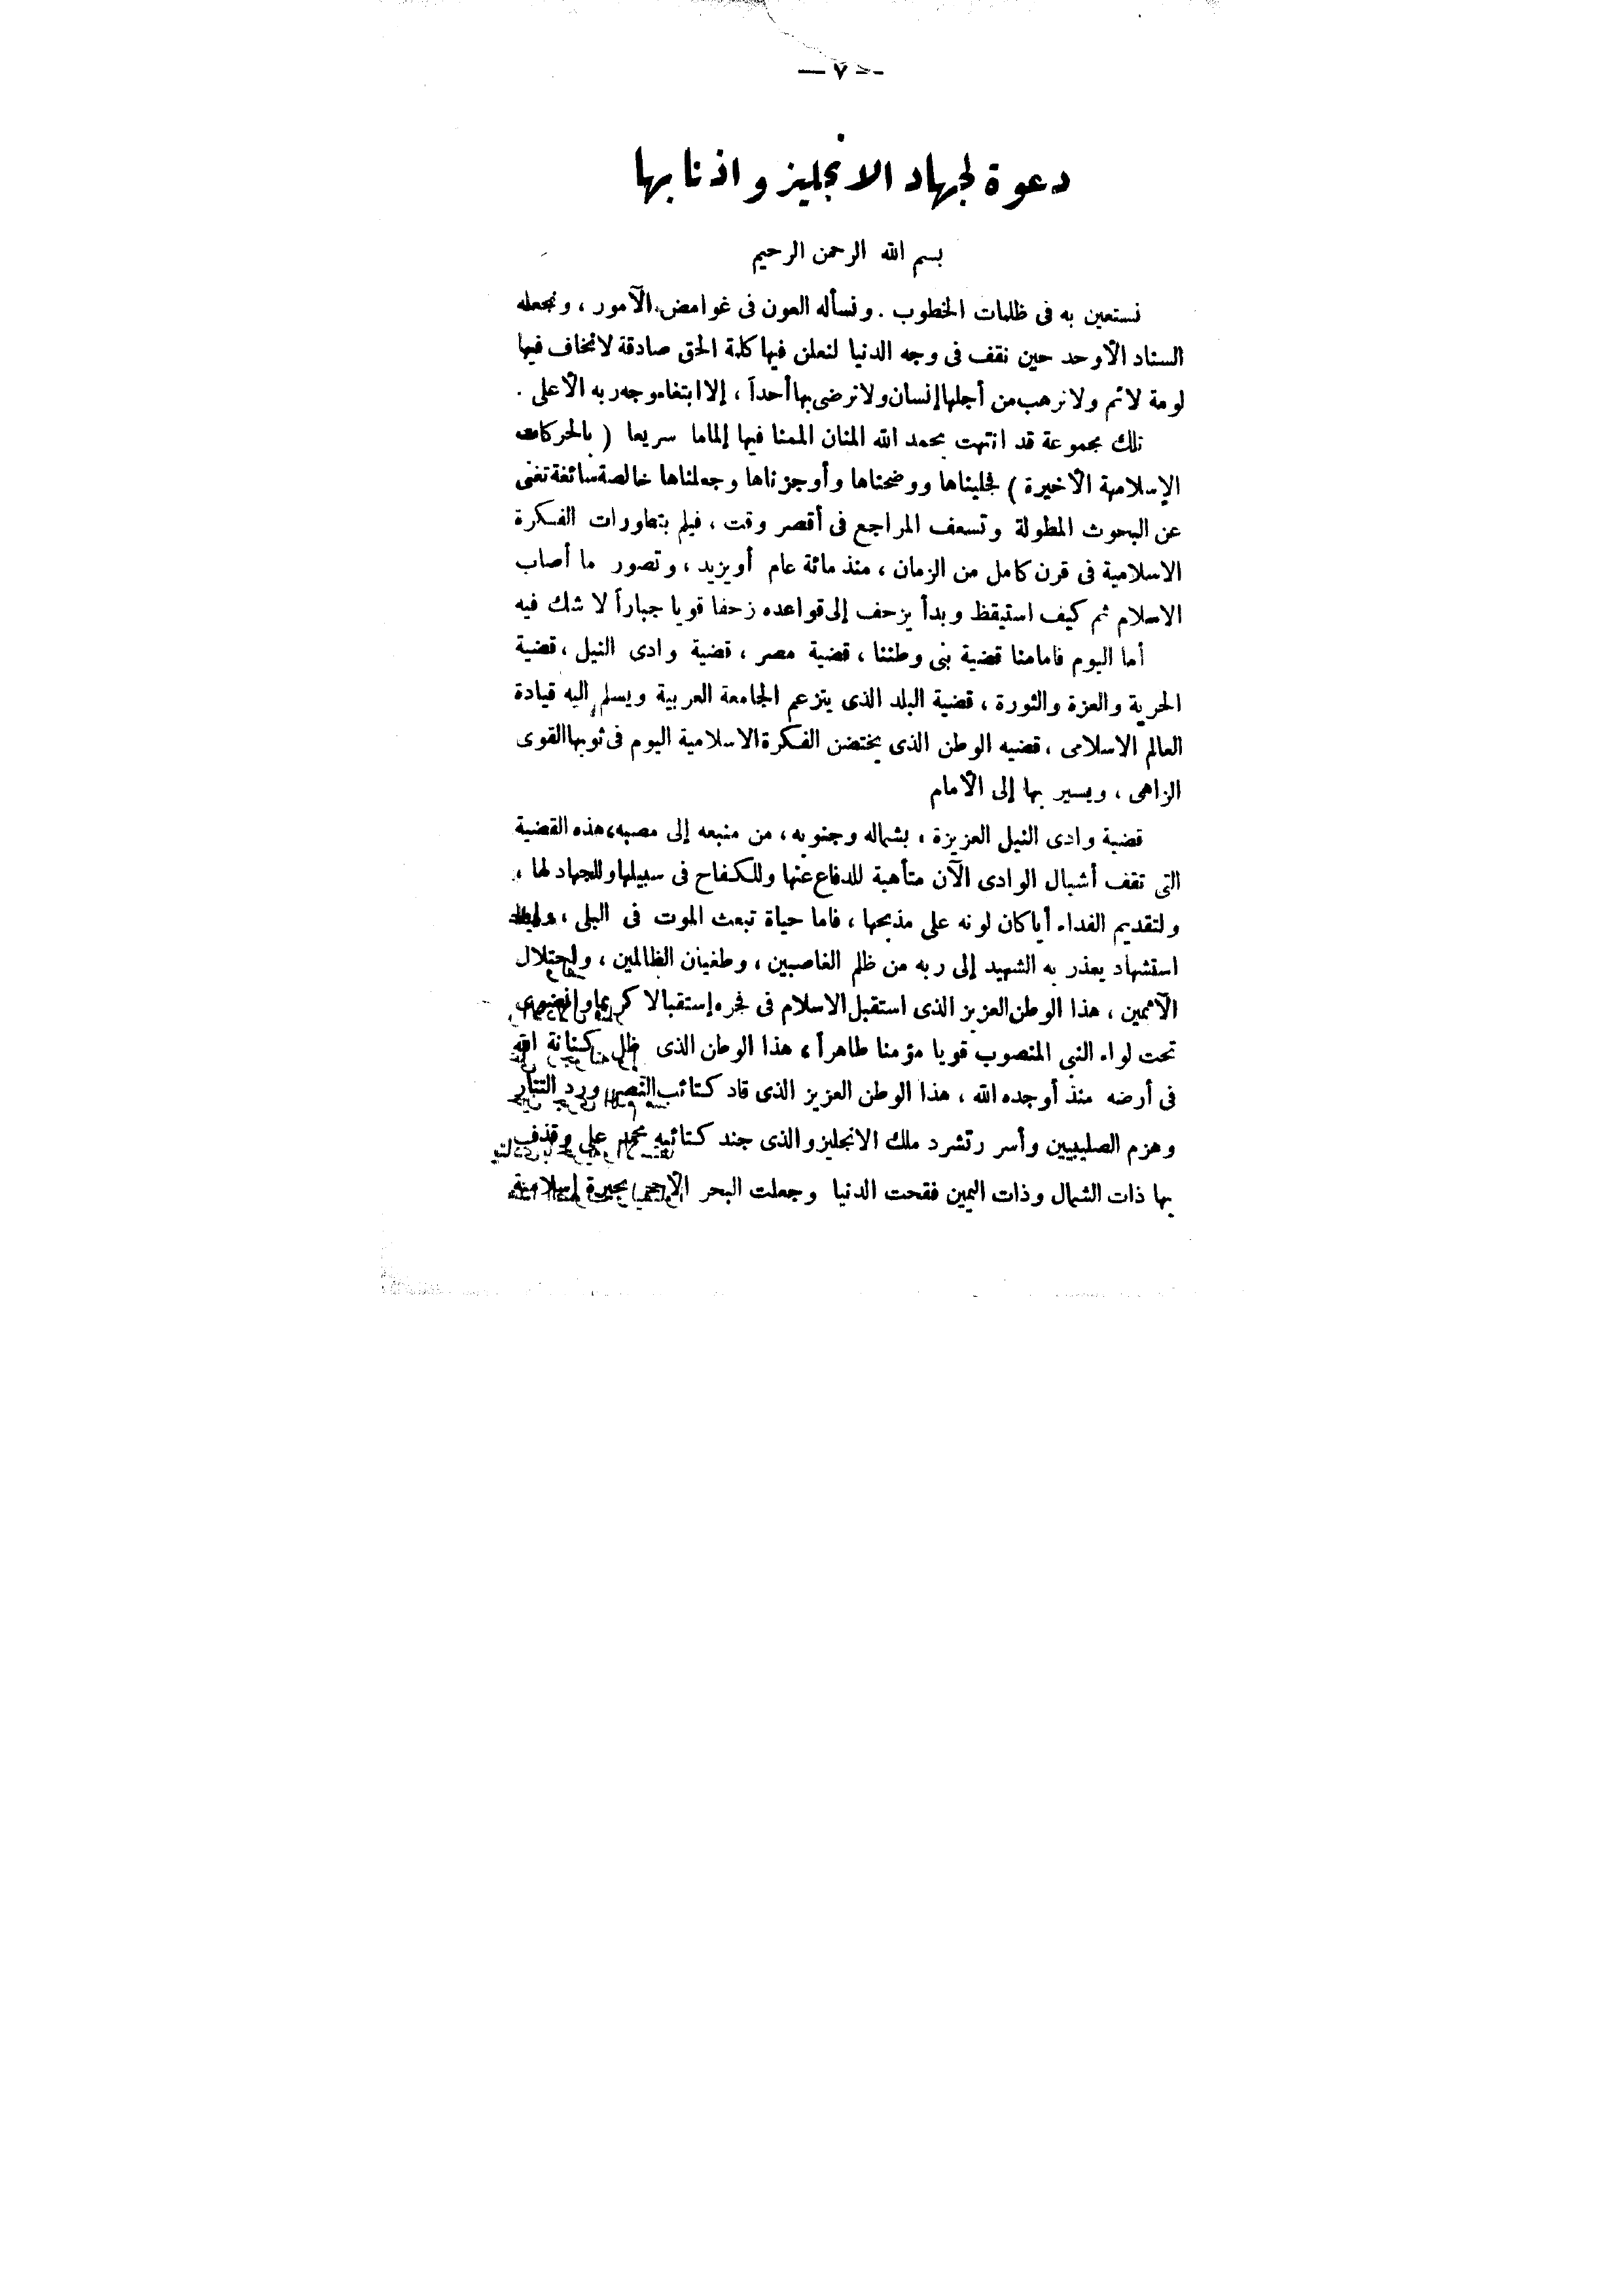 — ٧ —
دعوة لجهاد الانجليز واذنابها
بسم الله الرحمن الرحيم
نستعين به فى ظلمات الخطوب . ونسأله العون فى غوامض الأمور ، ونجعله
السناد الأوحد حين نقف فى وجه الدنيا لنعلن فيها كلمة الحق صادقة لا نخاف فيها
لومة لائم ولا نرهب من أجلها إنسان ولا نرضى بها أحداً ، إلا ابتغاء وجه ربه الأعلى .
تلك مجموعة قد انتهت بحمد الله المنان الممنا فيها إلماما سريعا ( بالحركات
الإسلامية الأخيرة ) فجليناها ووضحناها وأوجزناها وجعلناها خالصة سائغة تغنى
عن البحوث المطولة وتسعف المراجع فى أقصر وقت ، فيلم بتطورات الفكرة
الاسلامية فى قرن كامل من الزمان ، منذ مائة عام أو يزيد ، وتصور ما أصاب
الاسلام ثم كيف استيقظ وبدأ يزحف إلى قواعده زحفا قويا جباراً لا شك فيه
أما اليوم فامامنا قضية بنى وطننا ، قضية مصر ، قضية وادى النيل ، قضية
الحرية والعزة والثورة ، قضية البلد الذى يتزعم الجامعة العربية ويسلم اليه قيادة
العالم الاسلامى ، قضيه الوطن الذى يحتضن الفكرة الاسلامية اليوم فى ثوبها القوى
الزاهى ، ويسير بها إلى الأمام
قضية وادى النيل العزيزة ، بشماله وجنوبه ، من منبعه إلى مصبه ، هذه القضية
التى تقف أشبال الوادى الآن متأهبة للدفاع عنها وللكفاح فى سبيلها وللجهاد لها ،
ولتقديم الفداء أيا كان لونه على مذبحها ، فاما حياة تبعث الموت فى البلى ،
استشهاد يعذر به الشهيد إلى ربه من ظلم الغاصبين ، وطغيان الظالمين ، واحتلال
الآثمين ، هذا الوطن العزيز الذى استقبل الاسلام فى فجره إستقبالا كريما وانضوى
تحت لواء النبي المنصوب قويا مؤمنا طاهراً ، هذا الوطن الذى ظل كنانة الله
فى أرضه منذ أوجده الله ، هذا الوطن العزيز الذى قاد كتائب النصر ورد التتار
وهزم الصليبيين وأسر وتشرد ملك الانجليز والذى جند كتائبه محمد على وقذف
بها ذات الشمال وذات اليمين ففتحت الدنيا وجعلت البحر الأحمر بحيرة إسلامية